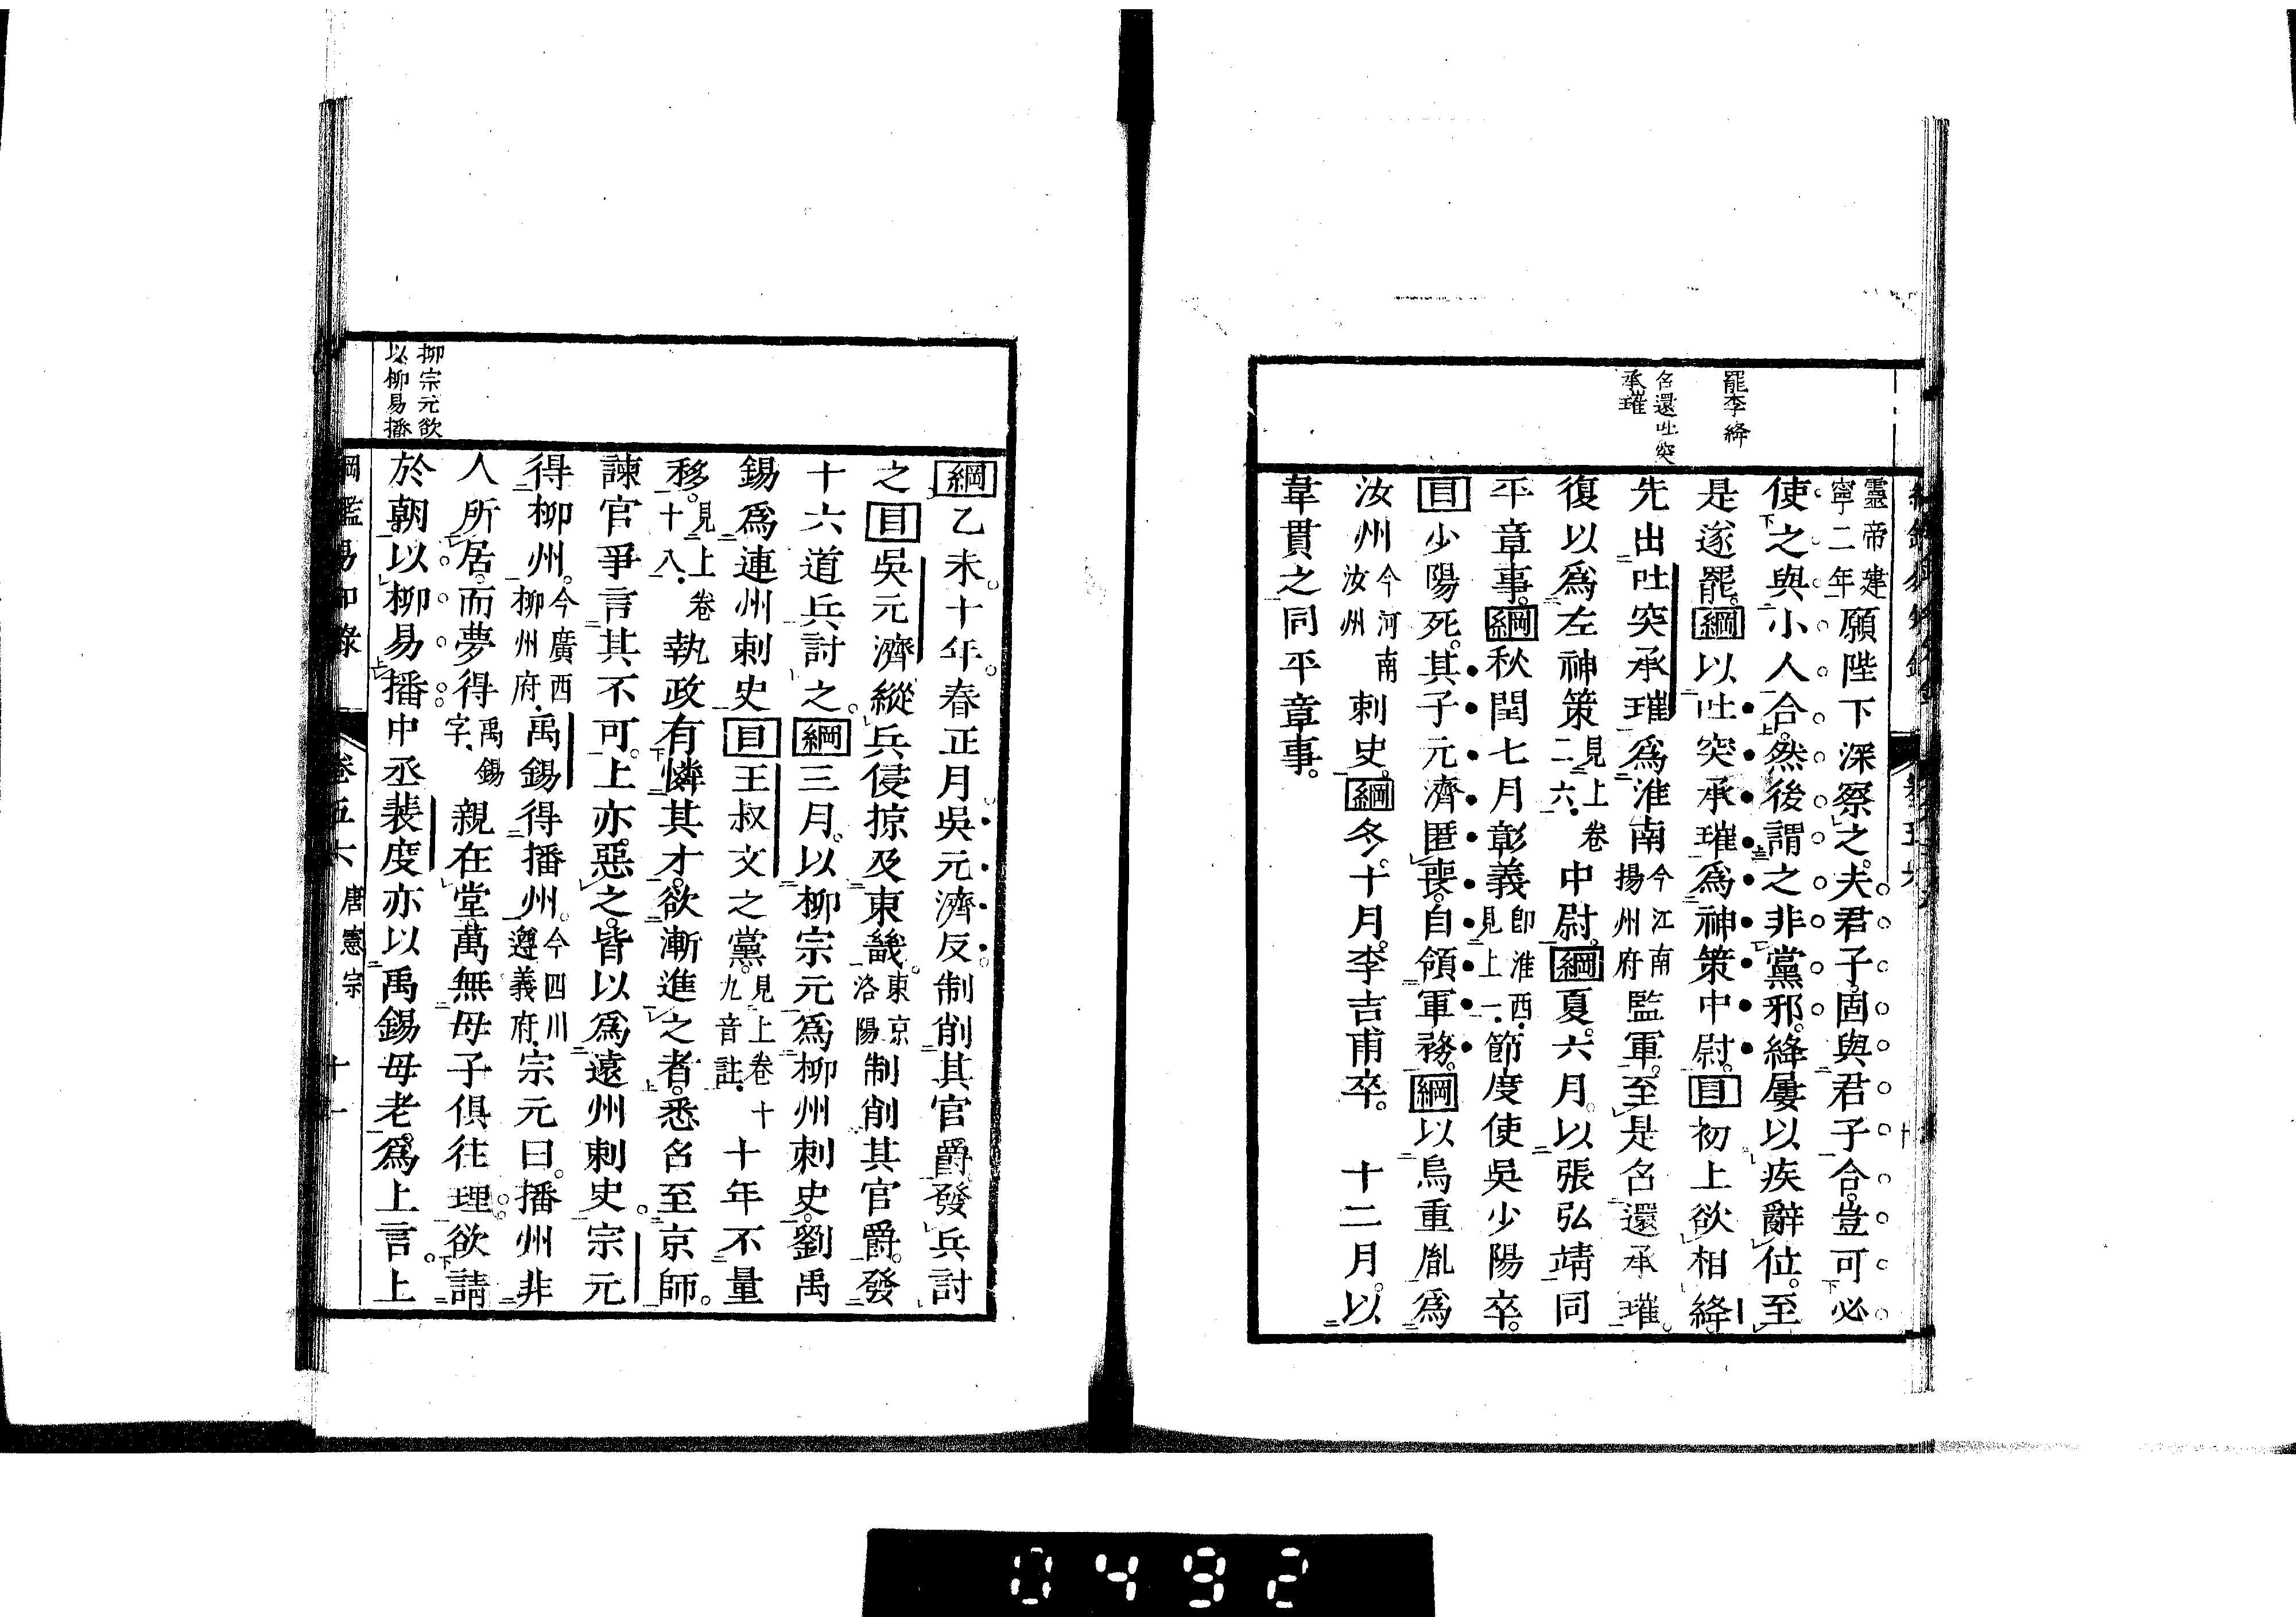 罷李絳
召還吐突
承璀
靈帝建
寧二年願陛下深察之。夫君子。固與君子合。豈可必
使之與小人合。然後謂之非黨邪。絳屢以疾辭位。至
是遂罷。綱以吐突承璀爲神策中尉。目初上欲相絳。
先出吐突承璀爲淮南今江南揚州府監軍。至是召還承璀。
復以爲左神策見上卷二六中尉。綱夏。六月。以張弘靖同
平章事。綱秋閏七月彰義卽淮西見上一節度使吳少陽卒。
目少陽死。其子元濟匿喪。自領軍務。綱以烏重胤爲
汝州今河南汝州刺史。綱冬。十月。李吉甫卒。十二月。以
韋貫之同平章事。
綱乙未。十年。春正月吳元濟反。制削其官爵發兵討
之目吳元濟縱兵侵掠及東畿。東京洛陽制削其官爵。發
十六道兵討之。綱三月。以柳宗元爲柳州刺史。劉禹
錫爲連州刺史目王叔文之黨。見上卷十九音註十年不量
移。見上卷十八執政有憐其才。欲漸進之者。悉召至京師。
諫官爭言其不可。上亦惡之。皆以爲遠州刺史。宗元
得柳州。今廣西柳州府禹錫得播州。今四川遵義府宗元曰。播州非
人所居。而夢得禹錫字親在堂。萬無母子俱往理。欲請
於朝以柳易播中丞裴度亦以禹錫母老。爲上言。上
柳宗元欲
以柳易播
綱鑑易知錄 卷五六 唐憲宗 十一
0492